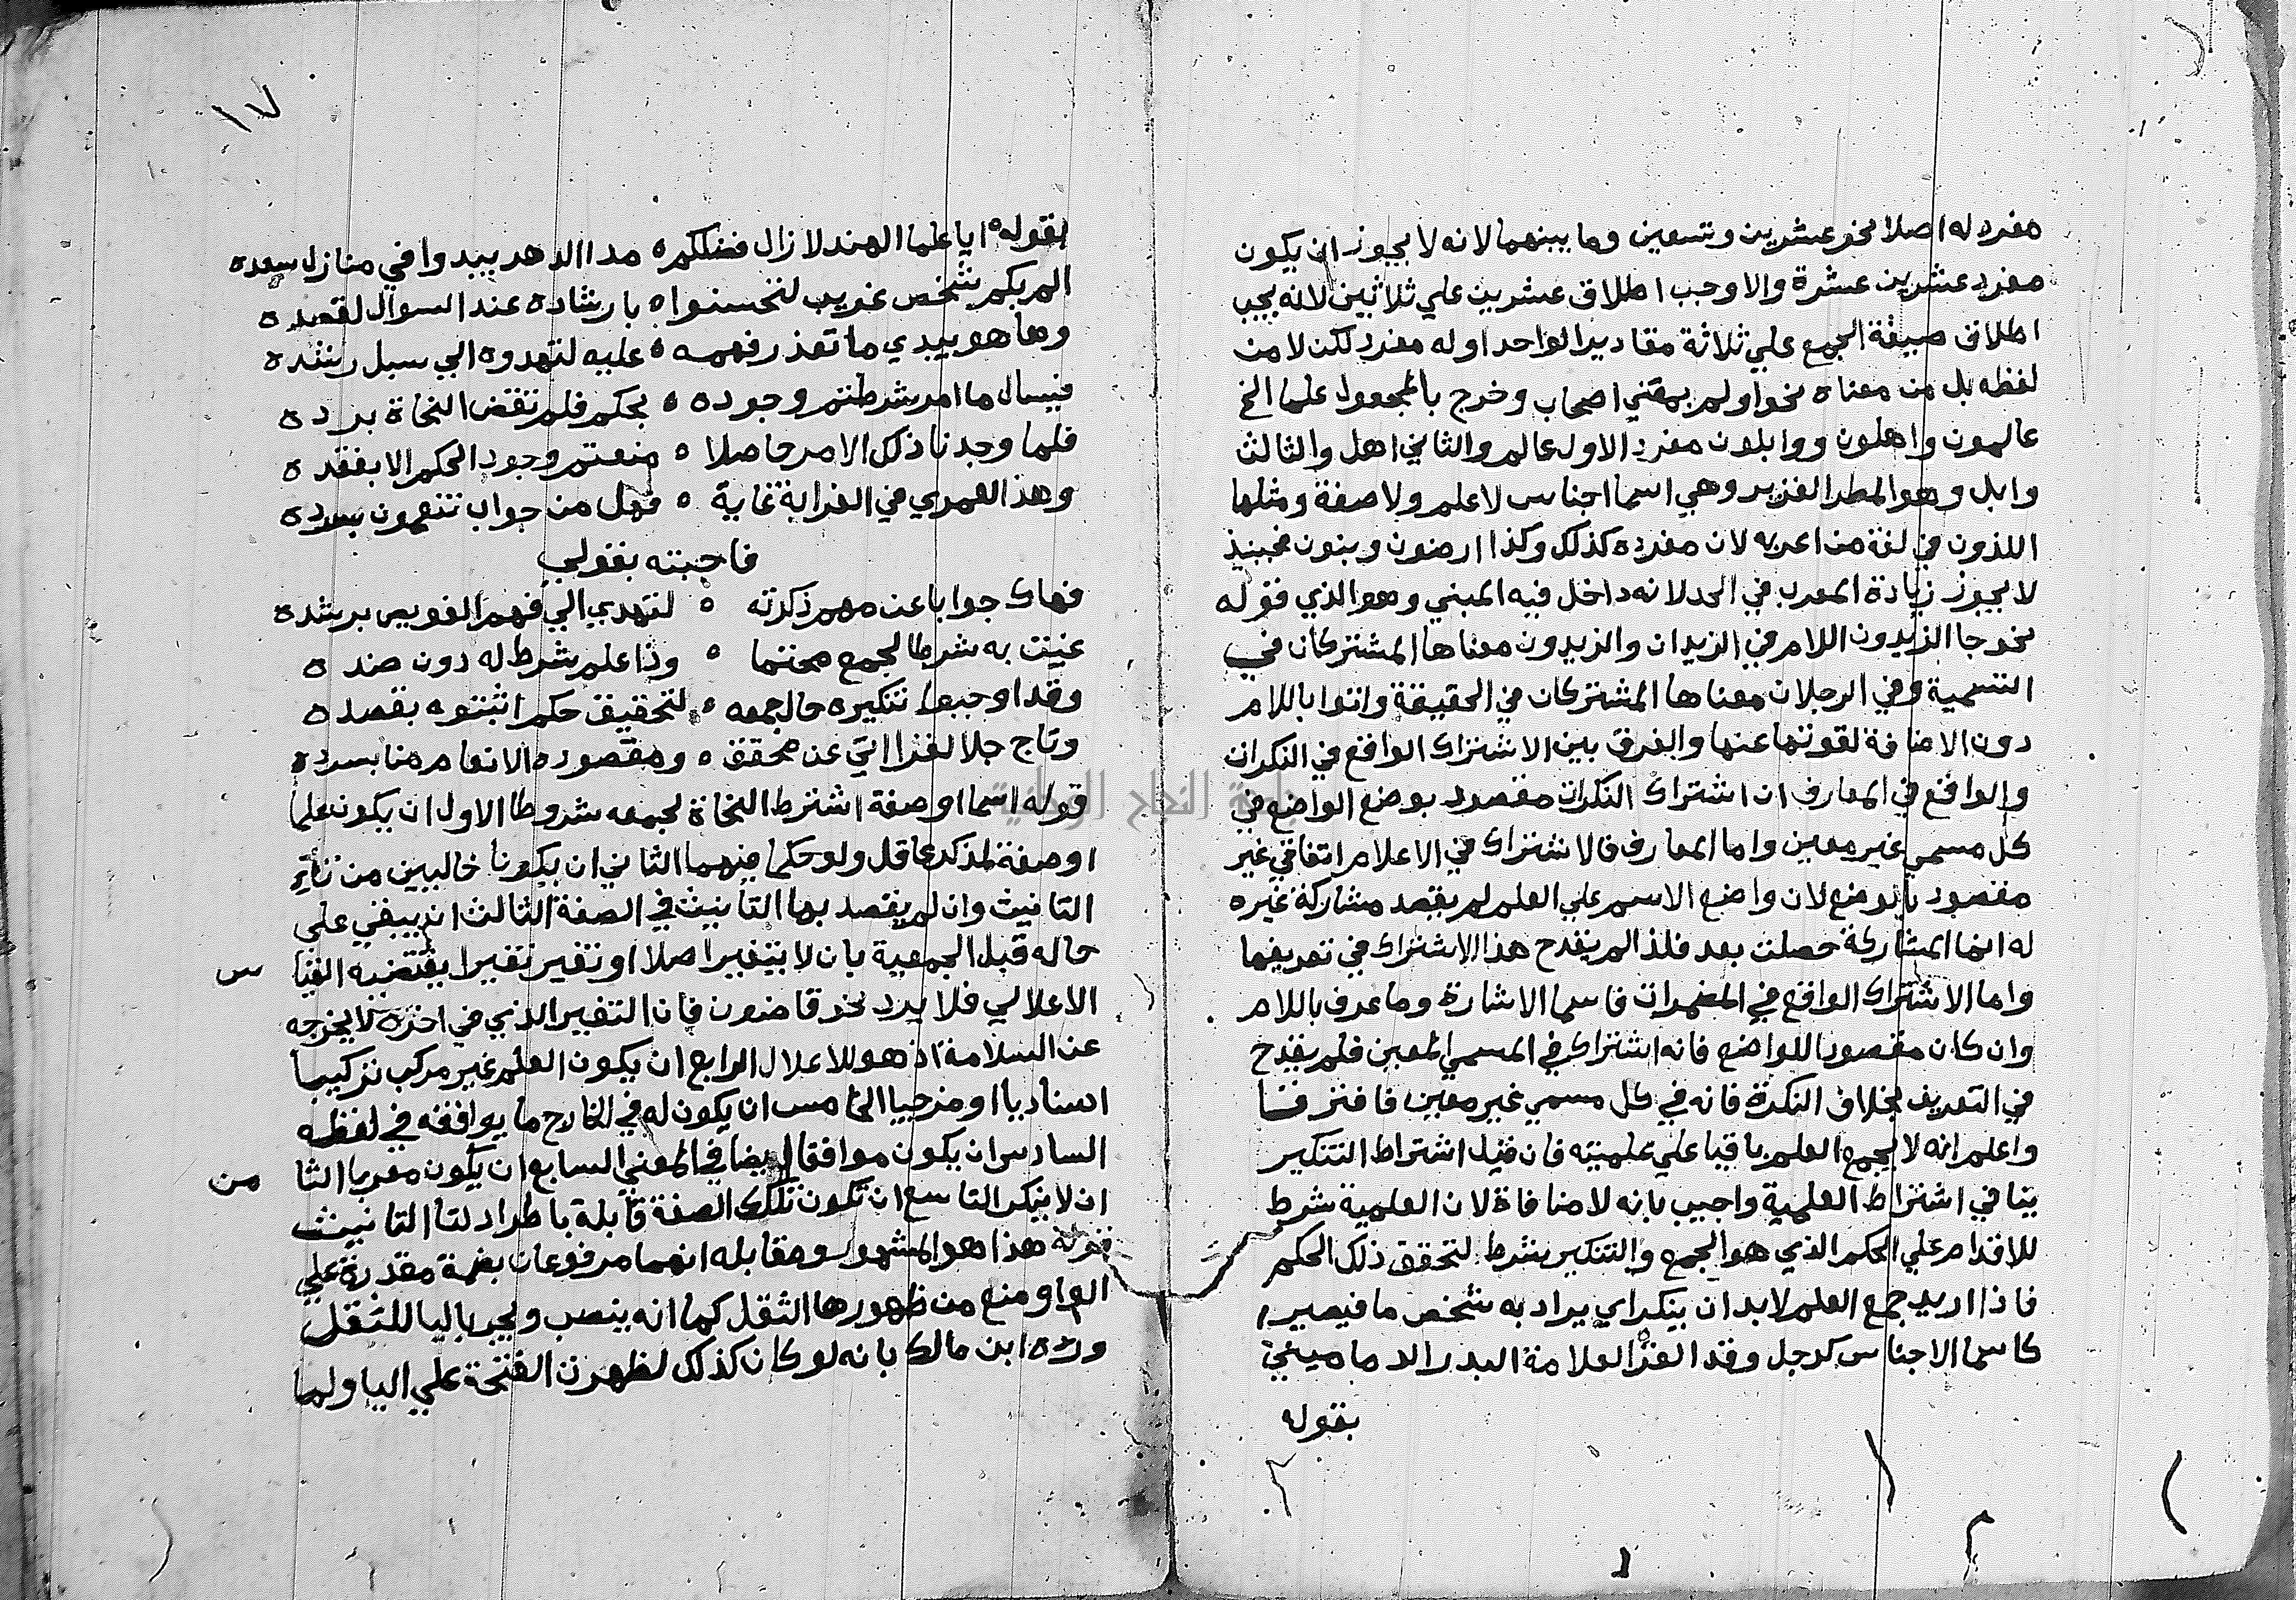 مفرد له اصلا نحو عشرين وتسعين وما بينهما لانه لا يجوز ان يكون
مفرد عشرين عشرة والا وجب اطلاق عشرين علي ثلاثين لانه يجب
اطلاق صيغة الجمع علي ثلاثة مقادير الواحد اوله مفرد لكن لا من
لفظه بل من معناه نحو اولم بمعني اصحاب وخرج بالمجعول علما الخ
عالمون واهلون ووابلون مفرد الاول عالم والثاني اهل والثالث
وابل وهو المطر الغزير وهي اسما اجناس لا علم ولا صفة ومثلها
اللذون في لغة من اعربه لان مفرده كذلك وكذا ارضون وبنون فحينيذ
لا يجوز زيادة المعرب في الحد لانه داخل فيه المبني وهو الذي قوله
نحو جا الزيدون اللام في الزيدان والزيدون معناها المشتركان في
التسمية وفي الرجلان معناها المشتركان في الحقيقة واتوا باللام
دون الاضافة لقوتها عنها والفرق بين الاشتراك الواقع في النكرات
والواقع في المعارف ان اشتراك النكرات مقصود بوضع الواضع في
كل مسمي غير معين واما المعارف فالاشتراك في الاعلام اتفاقي غير
مقصود بالوضع لان واضع الاسم علي العلم لم يقصد مشاركة غيره
له انما المشاركة حصلت بعد فلذا لم يقدح هذا الاشتراك في تعريفها
واما الاشتراك الواقع في المضمرات فاسما الاشارة وما عرف باللام
وان كان مقصود اللواضع فانه اشتراك في المسمي المعين فلم يقدح
في التعريف بخلاف النكرة فانه في كل مسمي غير معين فافترقتا
واعلم انه لا يجمع العلم باقيا علي علميته فان قيل اشتراط التنكير
ينافي اشتراط العلمية واجيب بانه لا منافاة لان العلمية شرط
للاقدام علي الحكم الذي هو الجمع والتنكير بشرط لتحقق ذلك الحكم
فاذا اريد جمع العلم لابد ان ينكر اي يراد به شخص ما فيصير
كاسما الاجناس كرجل وقد الغز العلامة البدر الدماميني
بقوله
١٧
بقوله ايا علما الهند لا زال فضلكم مدا الدهر يبدوا في منازل سعده
الم بكم شخص غريب لتحسنوا بارشاده عند السوال لقصده
وها هو يبدي ما تعذر فهمه عليه لتهدوه الي سبل رشده
فيسال ما امر شرطتم وجوده بحكم فلم تقض النحاة برده
فلما وجدنا ذلك الامر حاصلا منعتم وجود الحكم الا بفقده
وهذا لعمري في الغرابة غاية فهل من جواب تنعمون بسرده
فاجبته بقولي
فهاك جوابا عن مهم ذكرته لتهدي الي فهم العويص برشده
عنيت به شرطا لجمع محتما وذا علم شرط له دون ضده
وقد اوجبوا تنكيره حال جمعه لتحقيق حكم اثبتوه بقصده
وتاج جلا لغزا اتي عن محقق ومقصوده الانعام منا بسرده
قوله اسما او صفة اشترط النحاة لجمعه شروطا الاول ان يكون علما
او صفة لمذكر عاقل ولو حكما فيهما الثاني ان يكونا خاليين من تا
التانيث وان لم يقصد بها التانيث في الصفة الثالث ان يبقي علي
حاله قبل الجمعية بان لا يتغير اصلا او تغير تغيرا يقتضيه القيا س
الاعلالي فلا يرد نحو قاضون فان التغيير الذي في اخره لا يخرجه
عن السلامة اذ هو للاعلال الرابع ان يكون العلم غير مركب تركيبا
اسناديا او مزجيا الخامس ان يكون له في الخارج ما يوافقه في لفظه
السادس ان يكون موافقا له ايضا في المعني السابع ان يكون معربا الثا من
ان لا ينكر التاسع ان تكون تلك الصفة قابلة باطراد لتا التانيث
قوله هذا هو المشهور ومقابله انهما مرفوعان بضمة مقدرة علي
الواو منع من ظهورها الثقل كما انه ينصب ويجر باليا للثقل
ورده ابن مالك بانه لو كان كذلك لظهرت الفتحة علي اليا ولما